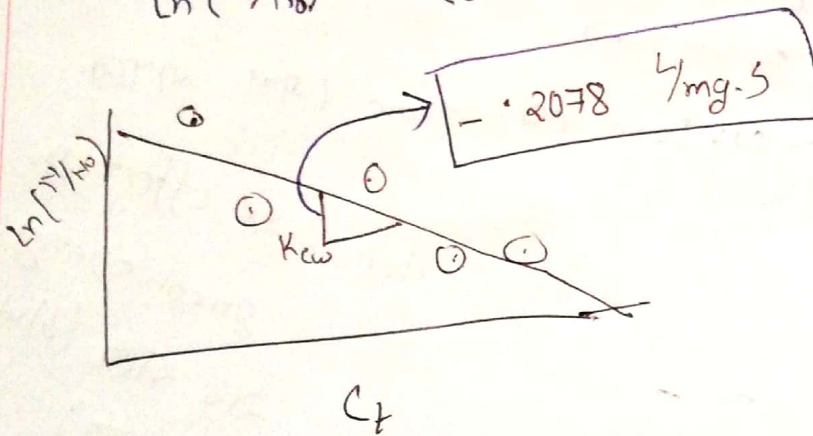 - .2078 L/mg.S
Ln(N/N₀)
Kcw
Ct